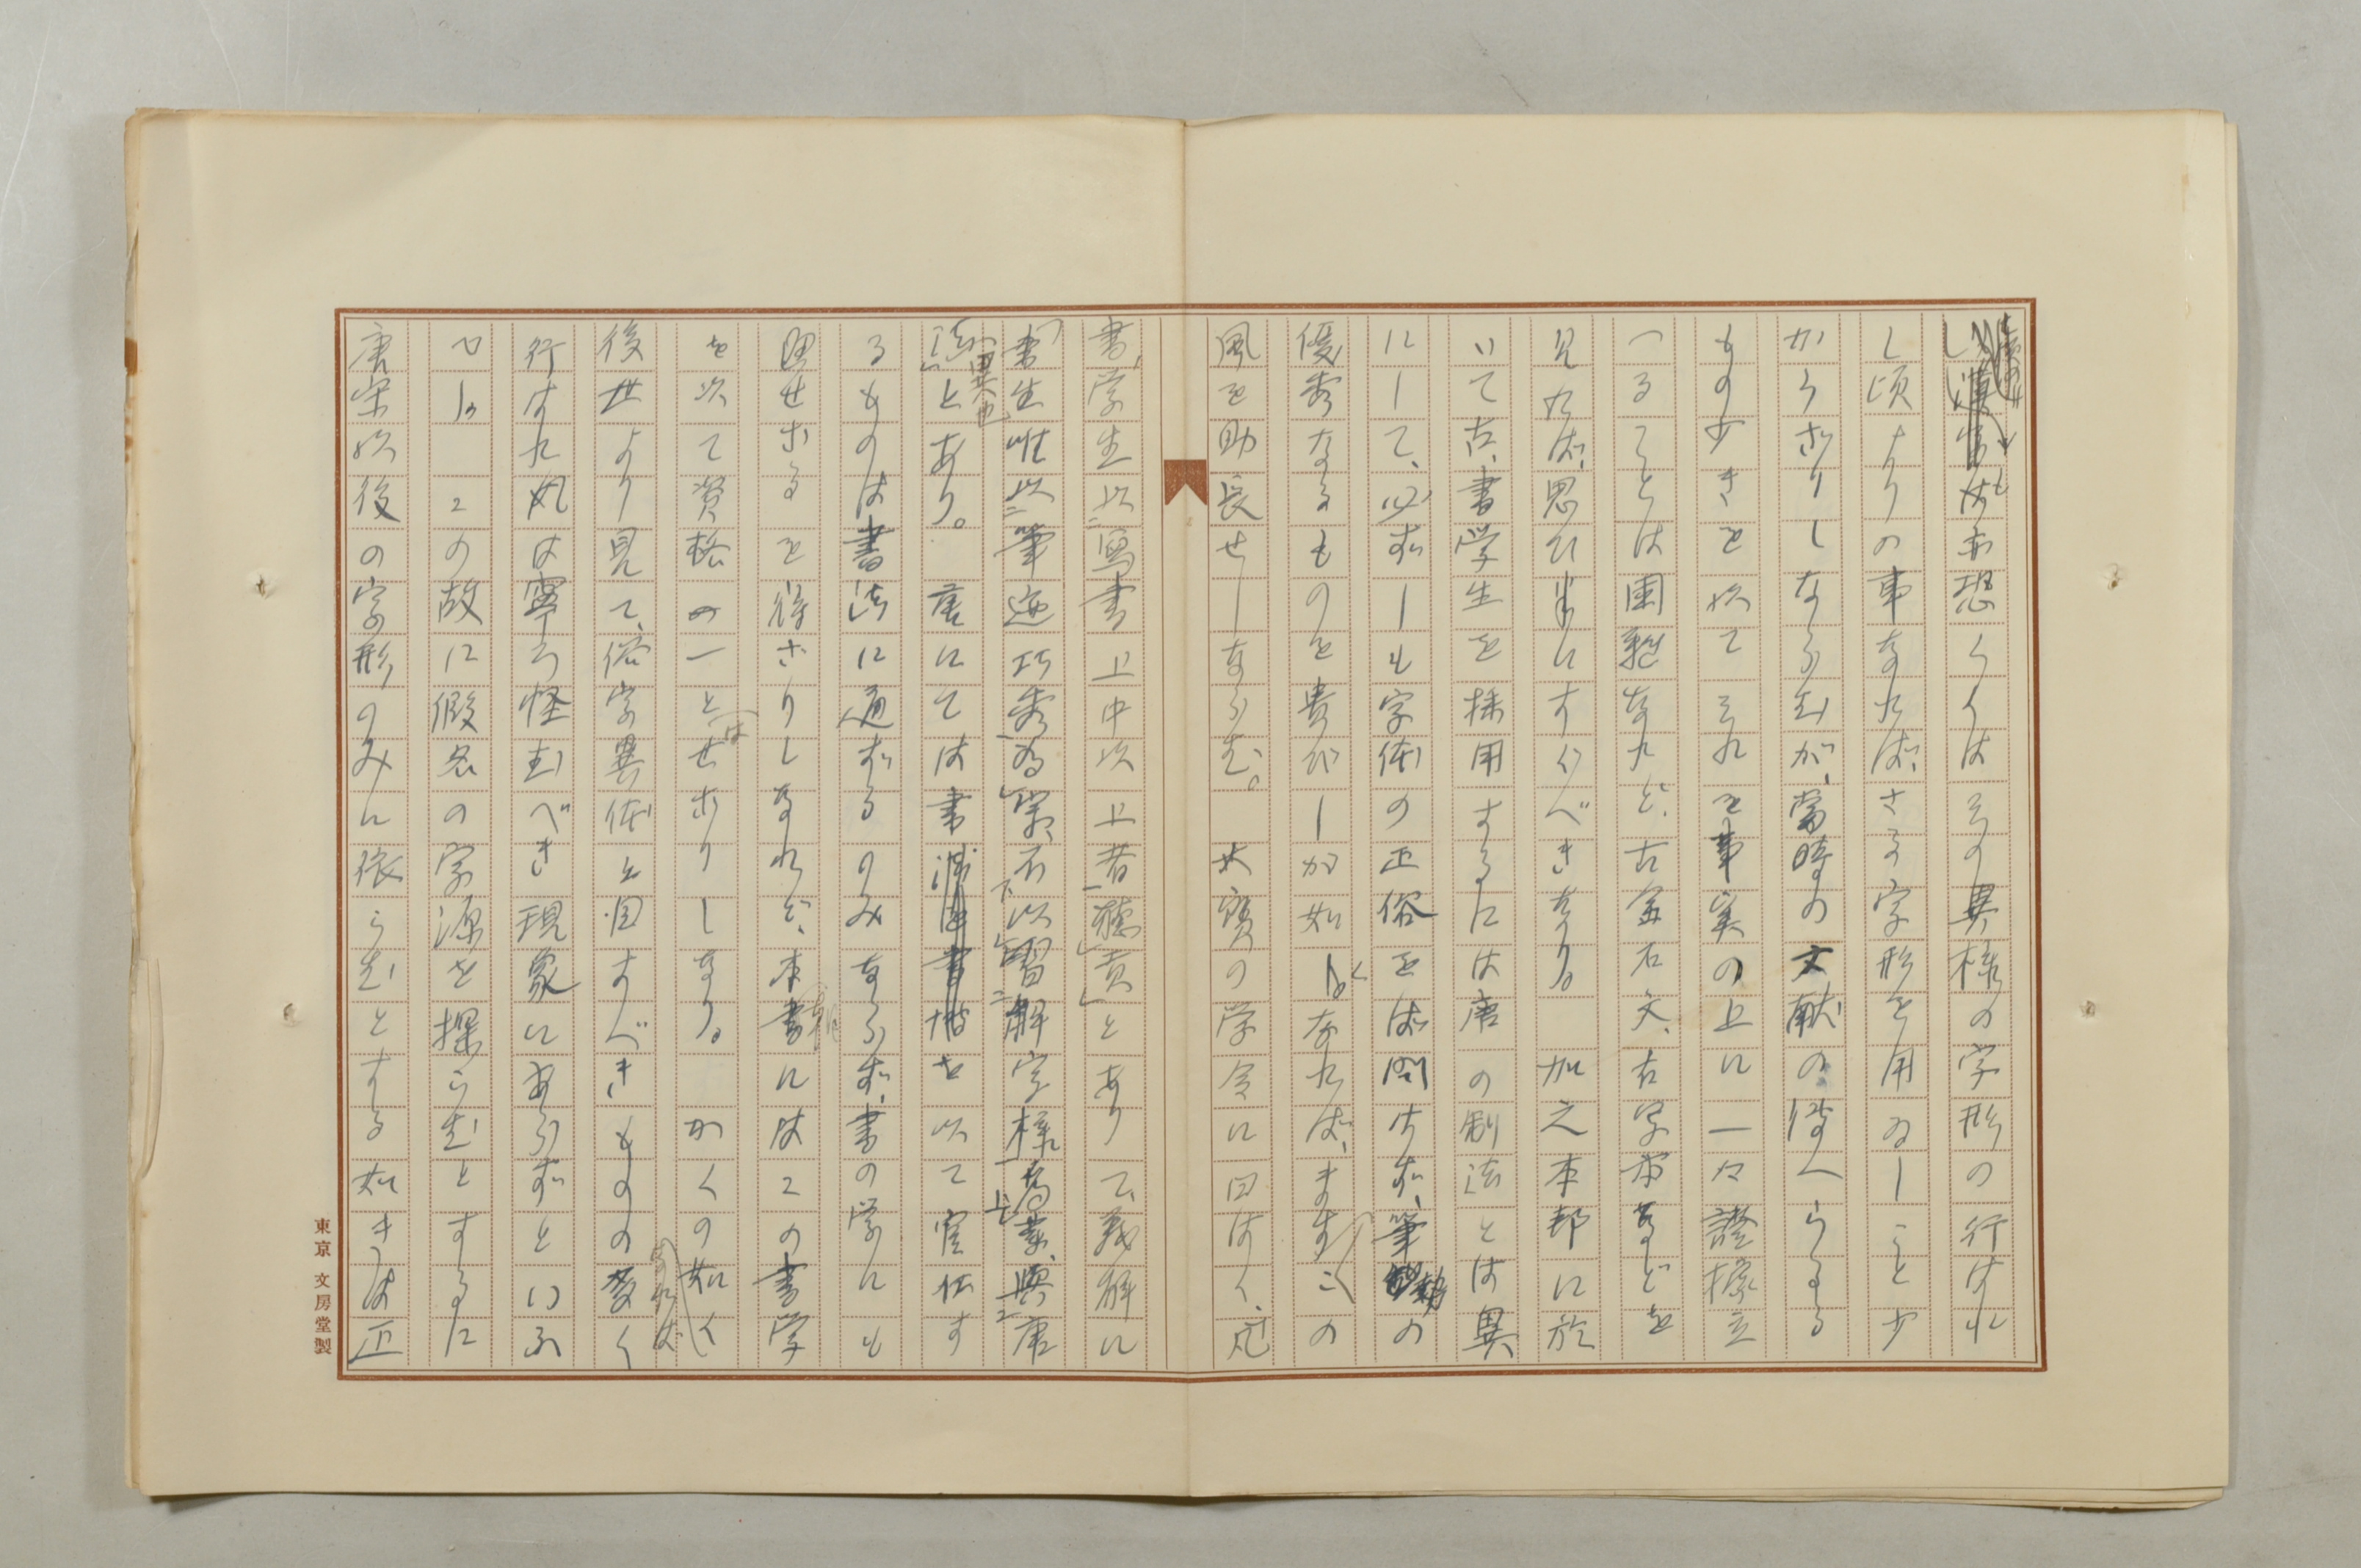 も亦恐くはその異様の字形の行はれ
し頃よりの事なれば、さる字形を用ゐしこと少
からざりしならむが、當時の文献の傳へらるる
もの少きを以てそれを事実の上に一々證據立
つることは困難なれど、古金石文、古写本などを
見れば、思ひ半にすぐべきなり。　加之本邦に於
いて古、書学生を採用するには唐の制法とは異
にして、必ずしも字体の正俗をば問はず、筆勢の
優秀なるものを貴びしが如くなれば、ますこの
風を助長せしならむ。　大寶の学令に曰はく、凡
書学生以写書上中以上者聴貢とありて、義解に
「書生唯以筆迹巧秀為宗、不以習解字様為業、與唐
法異也」とあり。　唐にては書を以て官仕す
るものは書法に通ずるのみならず、書の学にも
熟せざるを得ざりしなれど、本朝にはこの書学
を以て資格の一とはせざりしなり。　かくの如く
後世より見て、俗字異体と目すべきものの多く
行はれ風は寧ろ怪むべき現象にあらずといふ
べし。　この故に假名の字源を探らむとするに
唐宋以後の字形のみに依らむとする如きは正
東京 文房堂製